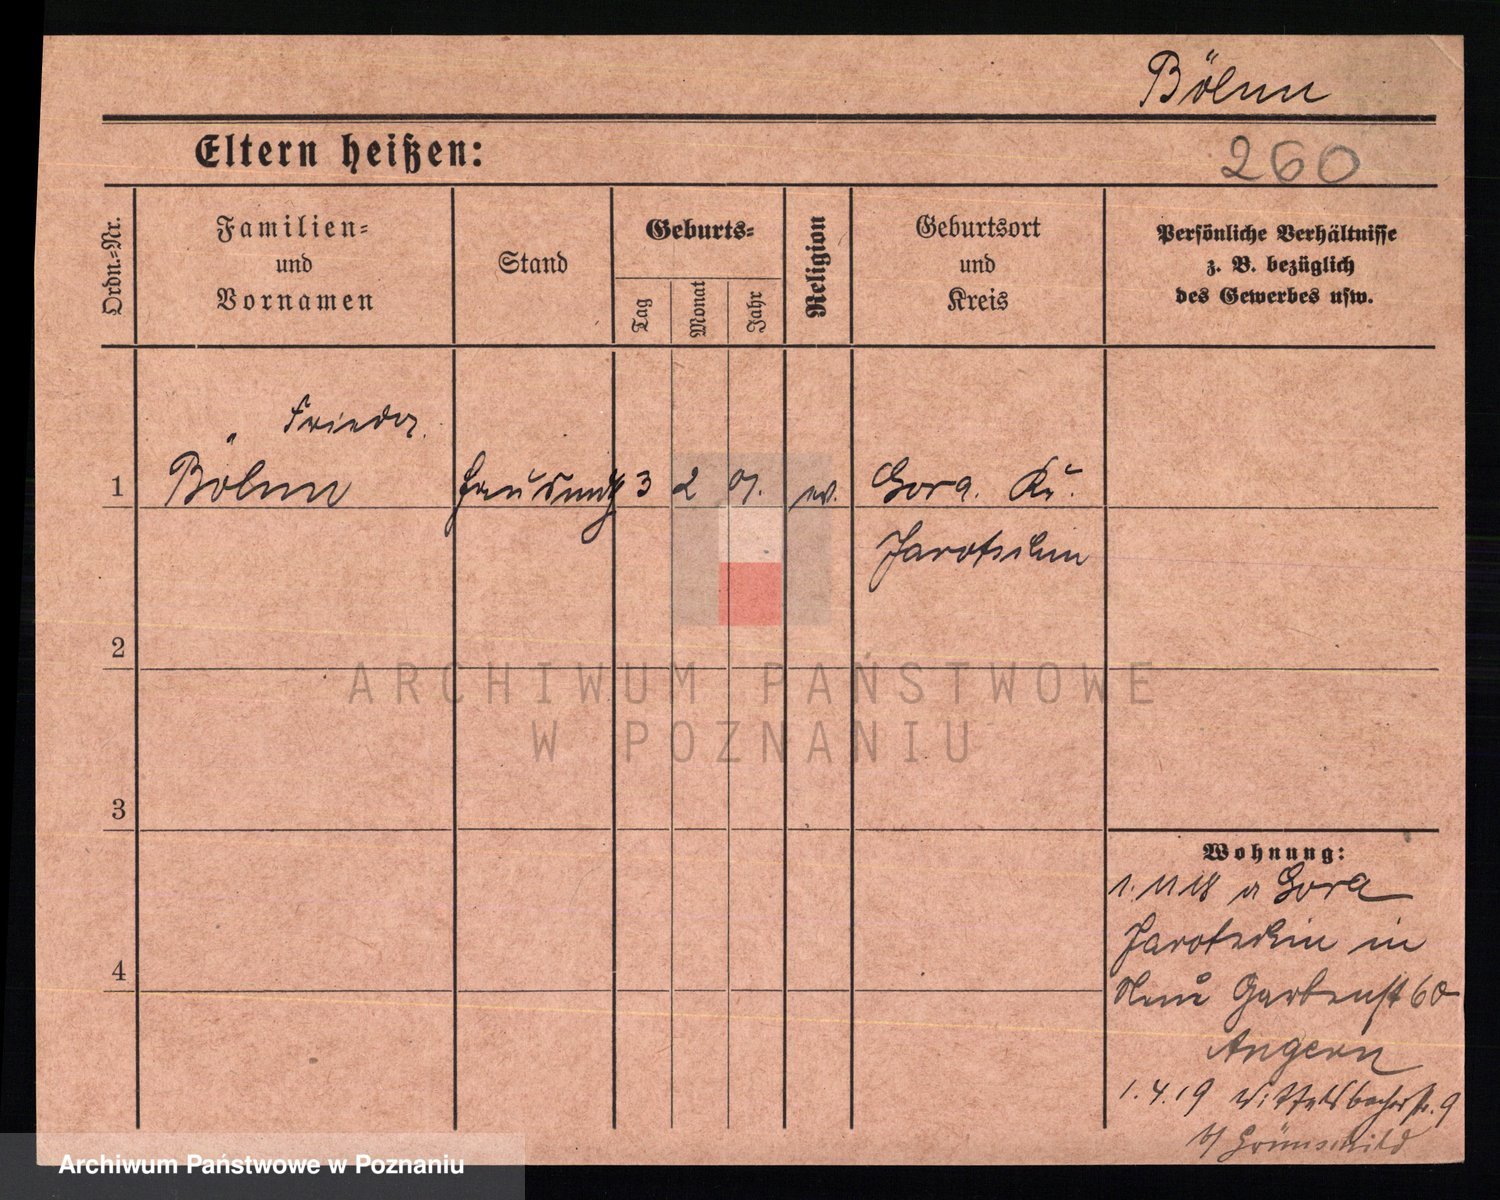 Böhm
Eltern heißen:
260
Ordn.=Nr.
Familien=
und
Vornamen
Stand
Geburts=
Tag
Monat
Jahr
Religion
Geburtsort
und
Kreis
Persönliche Verhältnisse
z. B. bezüglich
des Gewerbes usw.
Frieda
1 Böhm 3 2 01. ev. Gora. Kr.
Jarotschin
2
ARCHIWUM PAŃSTWOWE
W POZNANIU
3
Wohnung:
1. 11 18 Gora
Jarotschin in
4
Gartenst 60
Angern
1.4.19 Wittelsbacherstr. 9
b/ Grünschild
Archiwum Państwowe w Poznaniu